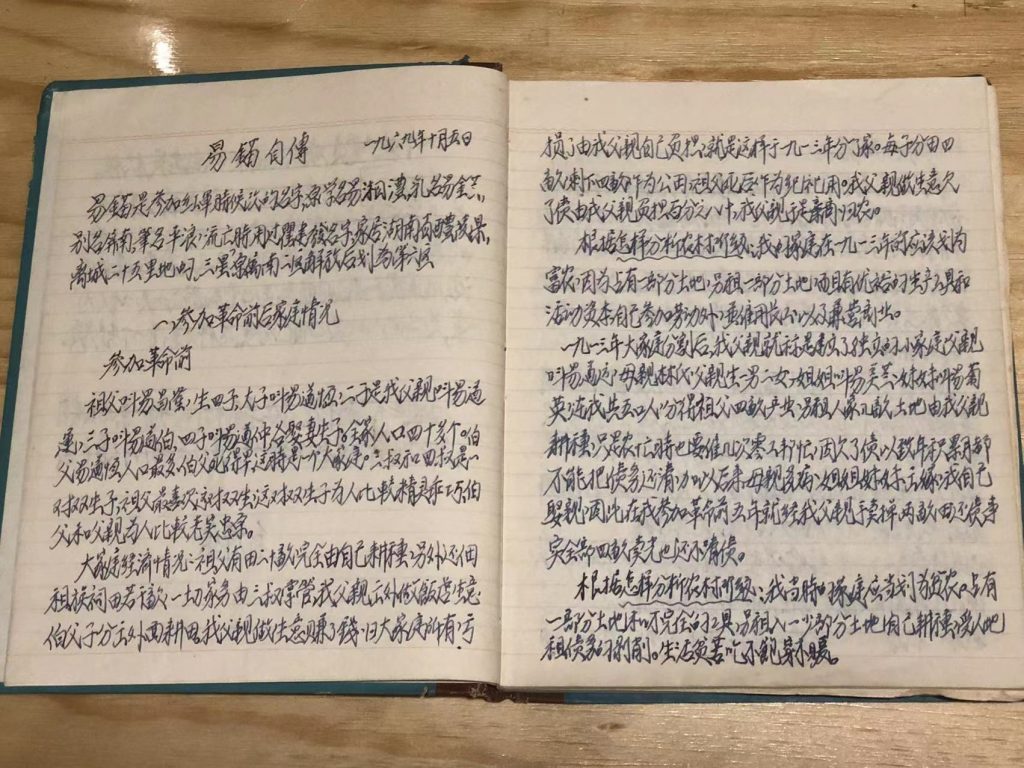 易鍿自傳 一九六九年十月五日
易鍿是参加红軍時候改的名字,原学名易湘濃,乳名易金
别名 南,筆名平浪,流亡時用过瞿 名字,家居湖南省醴陵县
离城二十五里地 三星 南二区解放后划为第六区
一、参加革命前后家庭情况
参加革命前
祖父叫易 ,生四子,大子叫易道恒,二子是我父親叫易道
連,三子叫易道伯,四子叫易道仲各娶妻 子。全家人口四十多个。伯
父易道恒人口最多,伯父死得早,这時是一个大家庭。三叔和四叔是一
对双生子,祖父最喜欢这对双生,这对双生子为人比較精灵乖巧,伯
父和父親为人比較老 。
大家庭经济情况:祖父有田二十畝完全由自己耕種,另外还佃
租族祠田若干畝,一切家务由三叔掌管,我父親在外做 生意,
伯父子分在外面耕田,我父親做生意赚了錢归大家庭所有,亏
損了由我父親自己负担,就是这样于一九一三年分了家。每子分田四
畝,剩下四畝作为公田,祖父死后作为纪祀用。我父親做生意欠
了债由我父親负担百分之八十,我父親于是弃商归农。
根据怎样分析农村阶级:我们家庭在一九一三年前应该划为
富农,因为占有一部分土地,另租一部分土地,而且有优裕的生产工具和
活动资本,自己参加劳动外,並雇用长工,以及兼营商业。
一九一三年大家庭分割后,我父親就 建立了独立的小家庭,父親
叫易道连,母親林氏,父親生一男二女,姐姐叫易 ,妹妹叫易菊
英,连我共五口人,分得祖父四畝产业,另租人家 畝土地由我父親
耕種,只是农忙時也要雇几次零工帮忙,因欠了债,以致年积月累都
不能把债务还清,加以后来母親多病,姐姐妹妹出嫁,我自己
娶親,因此在我参加革命前五年就经我父親手卖掉两畝田还债,事
实全部四畝卖光也还不清债。
根据怎样分析农村阶级:我当時的家庭应当划为贫农,占有
一部分土地和不完全的工具,另租入一少部分土地自己耕種,受人地
租债务的剥削。生活贫苦吃不飽穿不暖。